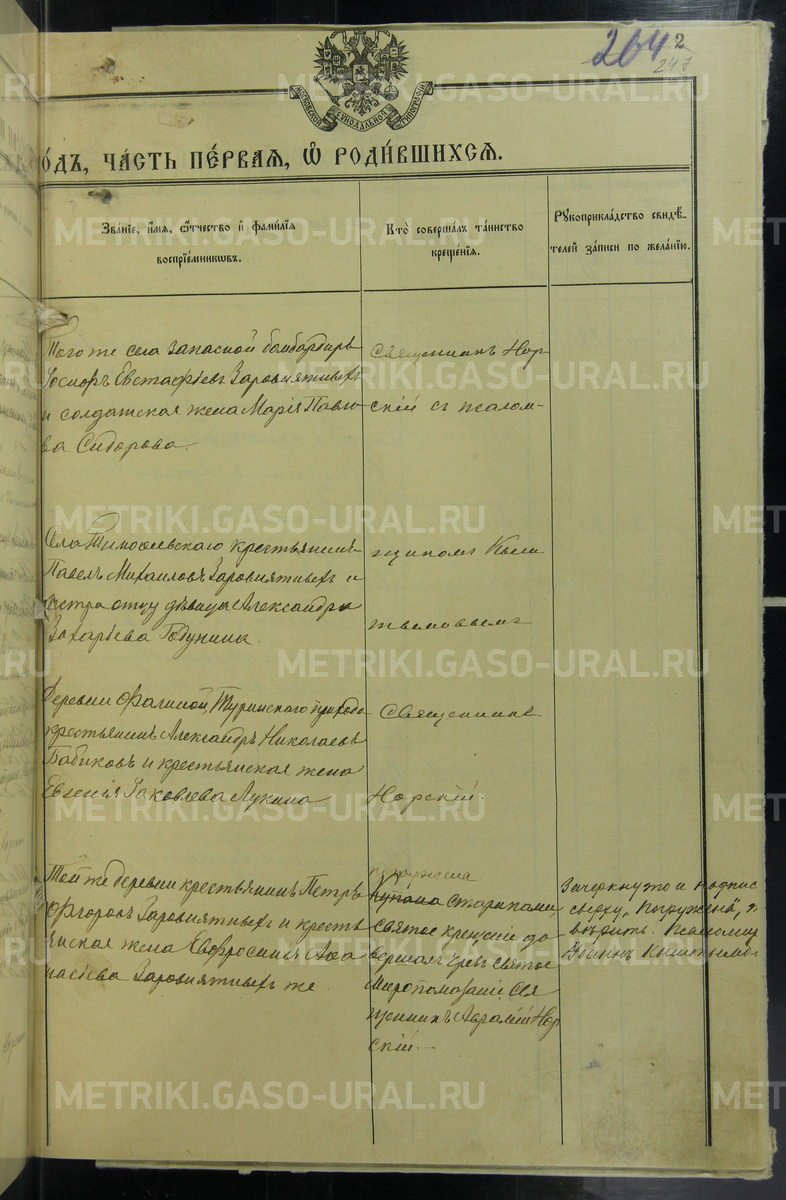 264 2
247
МОСКОВСКОЙ СѴНОДАЛЬНОЙ ТИПОГРАФІИ
о́дъ, ча́сть пе́рваѧ, ѡ҆ роди́вшихсѧ.
Зва́нїе, и҆́мѧ, ѻ҆́тчество и҆ фами́лїѧ
воспрїе́мникѡвъ.
Кто̀ соверша́лъ та́инство
креще́нїѧ.
Рꙋкоприкла́дство свидѣ́-
телей за́писи по жела́нїю.
Того же села запасной бомбардиръ
Іосифъ Евстафіевъ Заровнятныхъ
и солдатская жена Марія Павло-
ва Сидорова.
Священникъ Нор-
скій съ псалом-
Села Тимофеевскаго крестьянинъ
Павелъ Михаиловъ Заровнятныхъ и
сестра отцу дѣвица Александра
Захарьева Годунина.
щикомъ Кыш
тымовымъ
Деревни Фалиной, Туринскаго прихода
крестьянинъ Александръ Николаевъ
Бабиковъ и крестьянская жена
Евгенія Іаковлева Лукина
Священникъ
Норскій.
Той же деревни крестьянинъ Петръ
Ѳедоровъ Заровнятныхъ и кресть
янская жена Евфросинія Аѳа
насіева Заровнятныхъ же.
погружена
стариками,
святое крещеніе до
вершалъ чрезъ святое
Мѵропомазаніе, Свя
щенникъ Авраамій Нор
скій.
Зачеркнуто и надпис
сверху „погружена“,
вѣрить. Псаломщ
Іоаннъ Кыштымов
METRIKI.GASO-URAL.RU